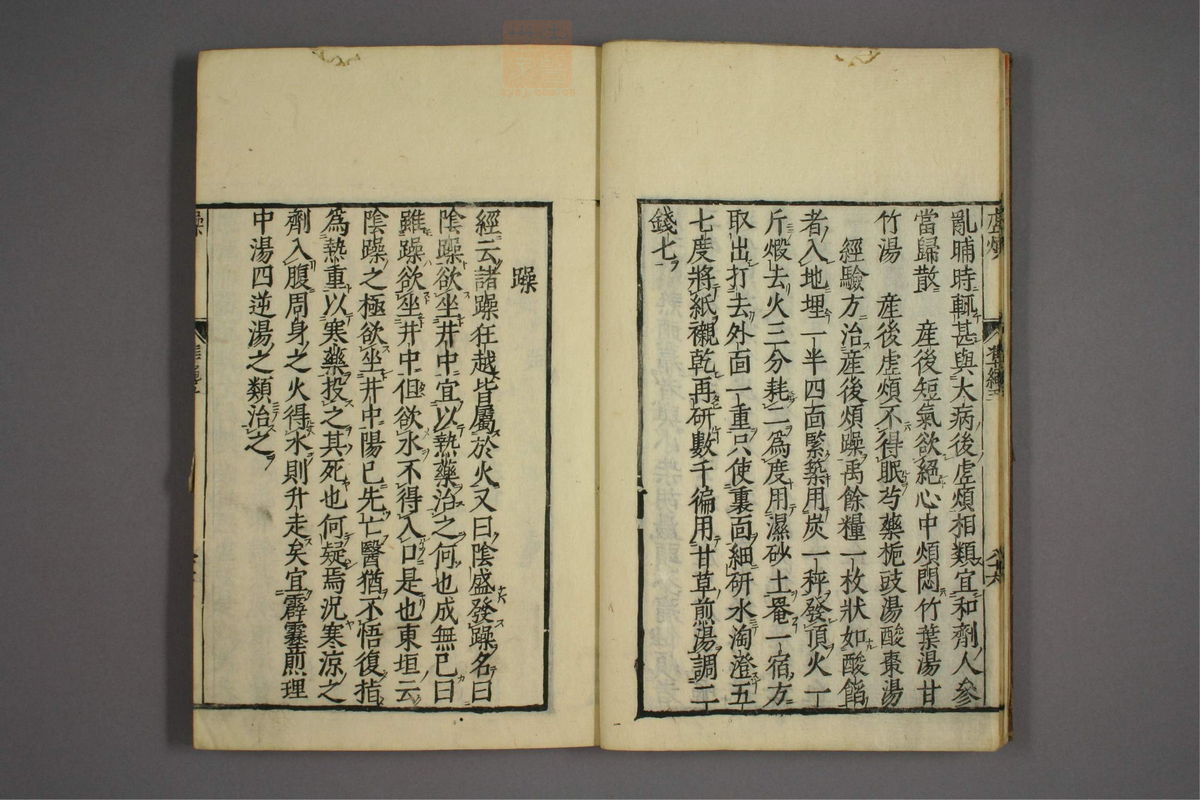 虛煩
亂晡時輒甚與大病後虛煩相類宜和劑人參
當歸散　産後短氣欲絕心中煩悶竹葉湯甘
竹湯　産後虛煩不得眠芍藥梔豉湯酸棗湯
經驗方治産後煩躁禹餘糧一枚狀如酸餡
者入地埋一半四面緊築用炭一秤發頂火一
斤煅去火三分耗二爲度用濕砂土罨一宿方
取出打去外面一重只使裏面細研水淘澄五
七度將紙襯乾再研數千徧用甘草煎湯調二
錢七
躁
經云諸躁狂越皆屬於火又曰陰盛發躁名曰
陰躁欲坐井中宜以熱藥治之何也成無己曰
雖躁欲坐井中但欲水不得入口是也東垣云
陰躁之極欲坐井中陽已先亡醫猶不悟復指
爲熱重以寒藥投之其死也何疑焉況寒涼之
劑入腹周身之火得水則升走矣宜霹靂煎理
中湯四逆湯之類治之